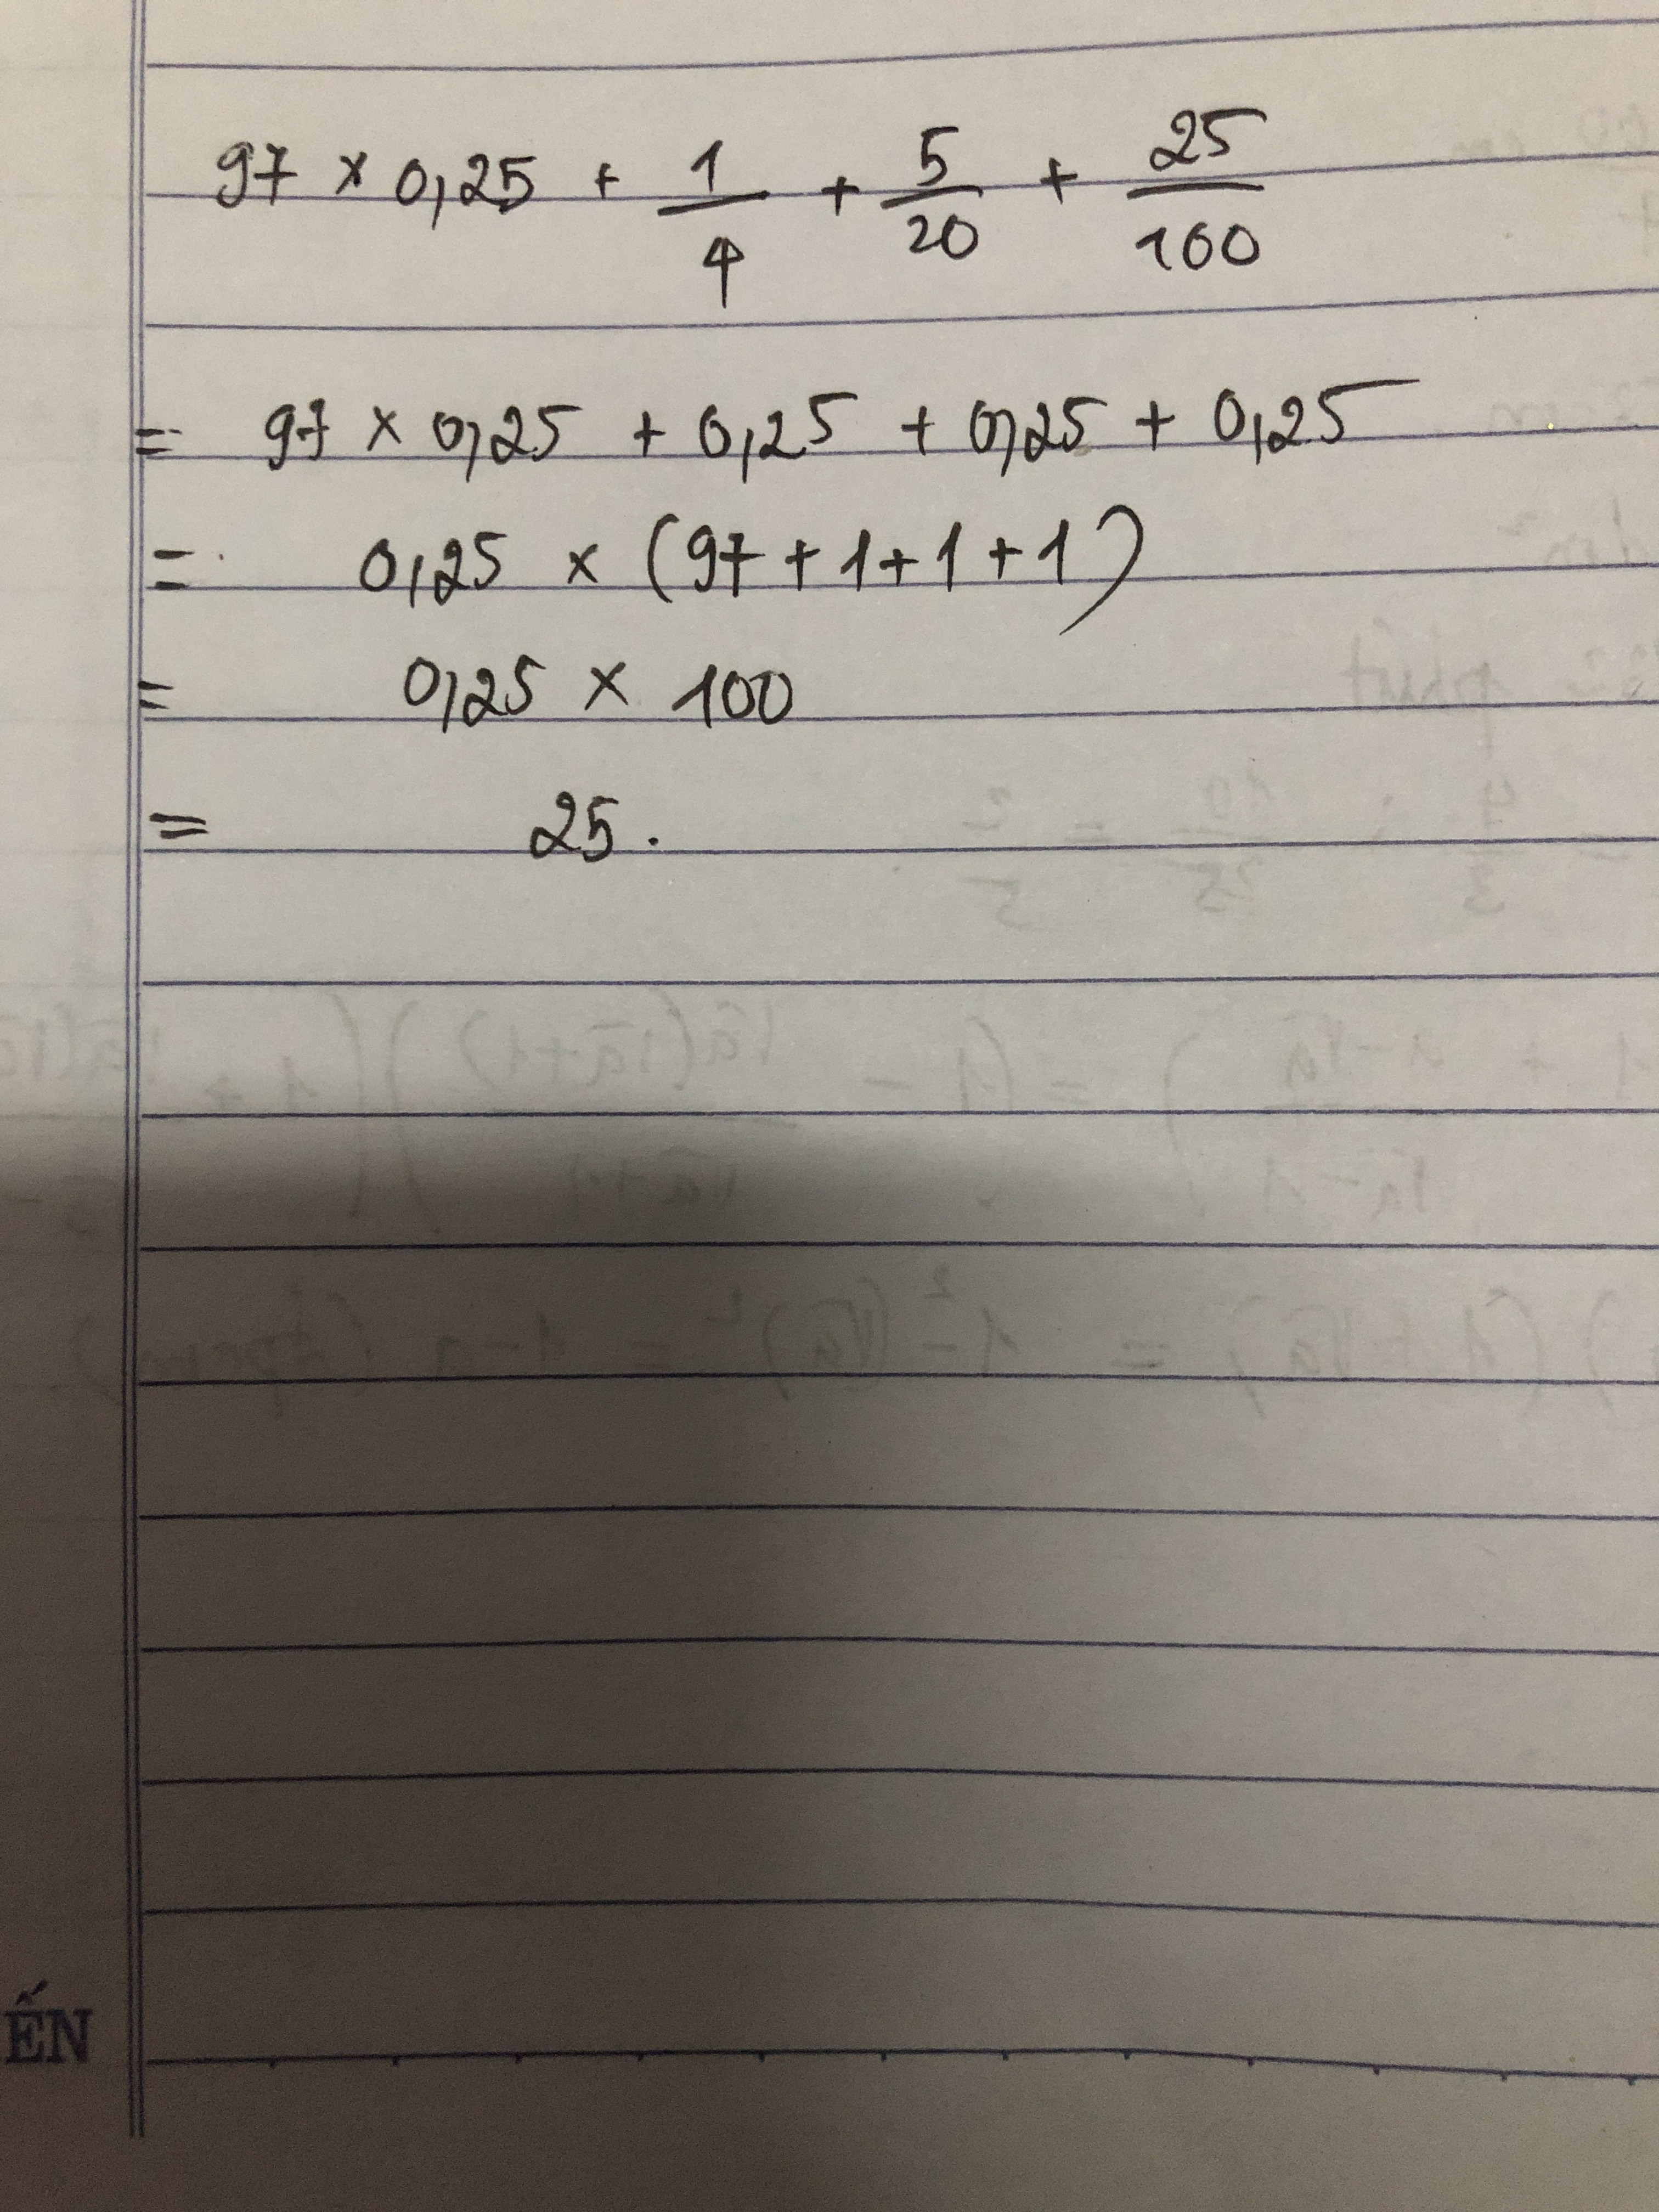 97 × 0,25 + 1/4 + 5/20 + 25/100
= 97 × 0,25 + 0,25 + 0,25 + 0,25
= 0,25 × (97 + 1 + 1 + 1)
= 0,25 × 100
= 25.
ẾN